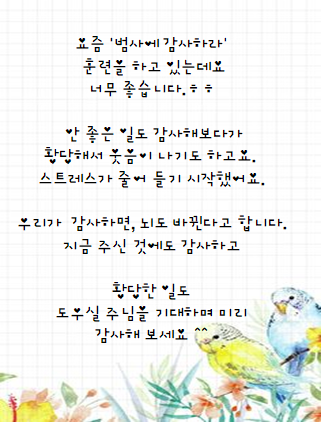 요즘 '범사에감사하라'
훈련을 하고 있는데요
너무 좋습니다.ㅎㅎ
안 좋은 일도 감사해보다가
황당해서 웃음이 나기도 하고요.
스트레스가 줄어 들기 시작했어요.
우리가 감사하면, 뇌도 바뀐다고 합니다.
지금 주신 것에도 감사하고
황당한 일도
도우실 주님을 기대하며 미리
감사해 보세요 ^^